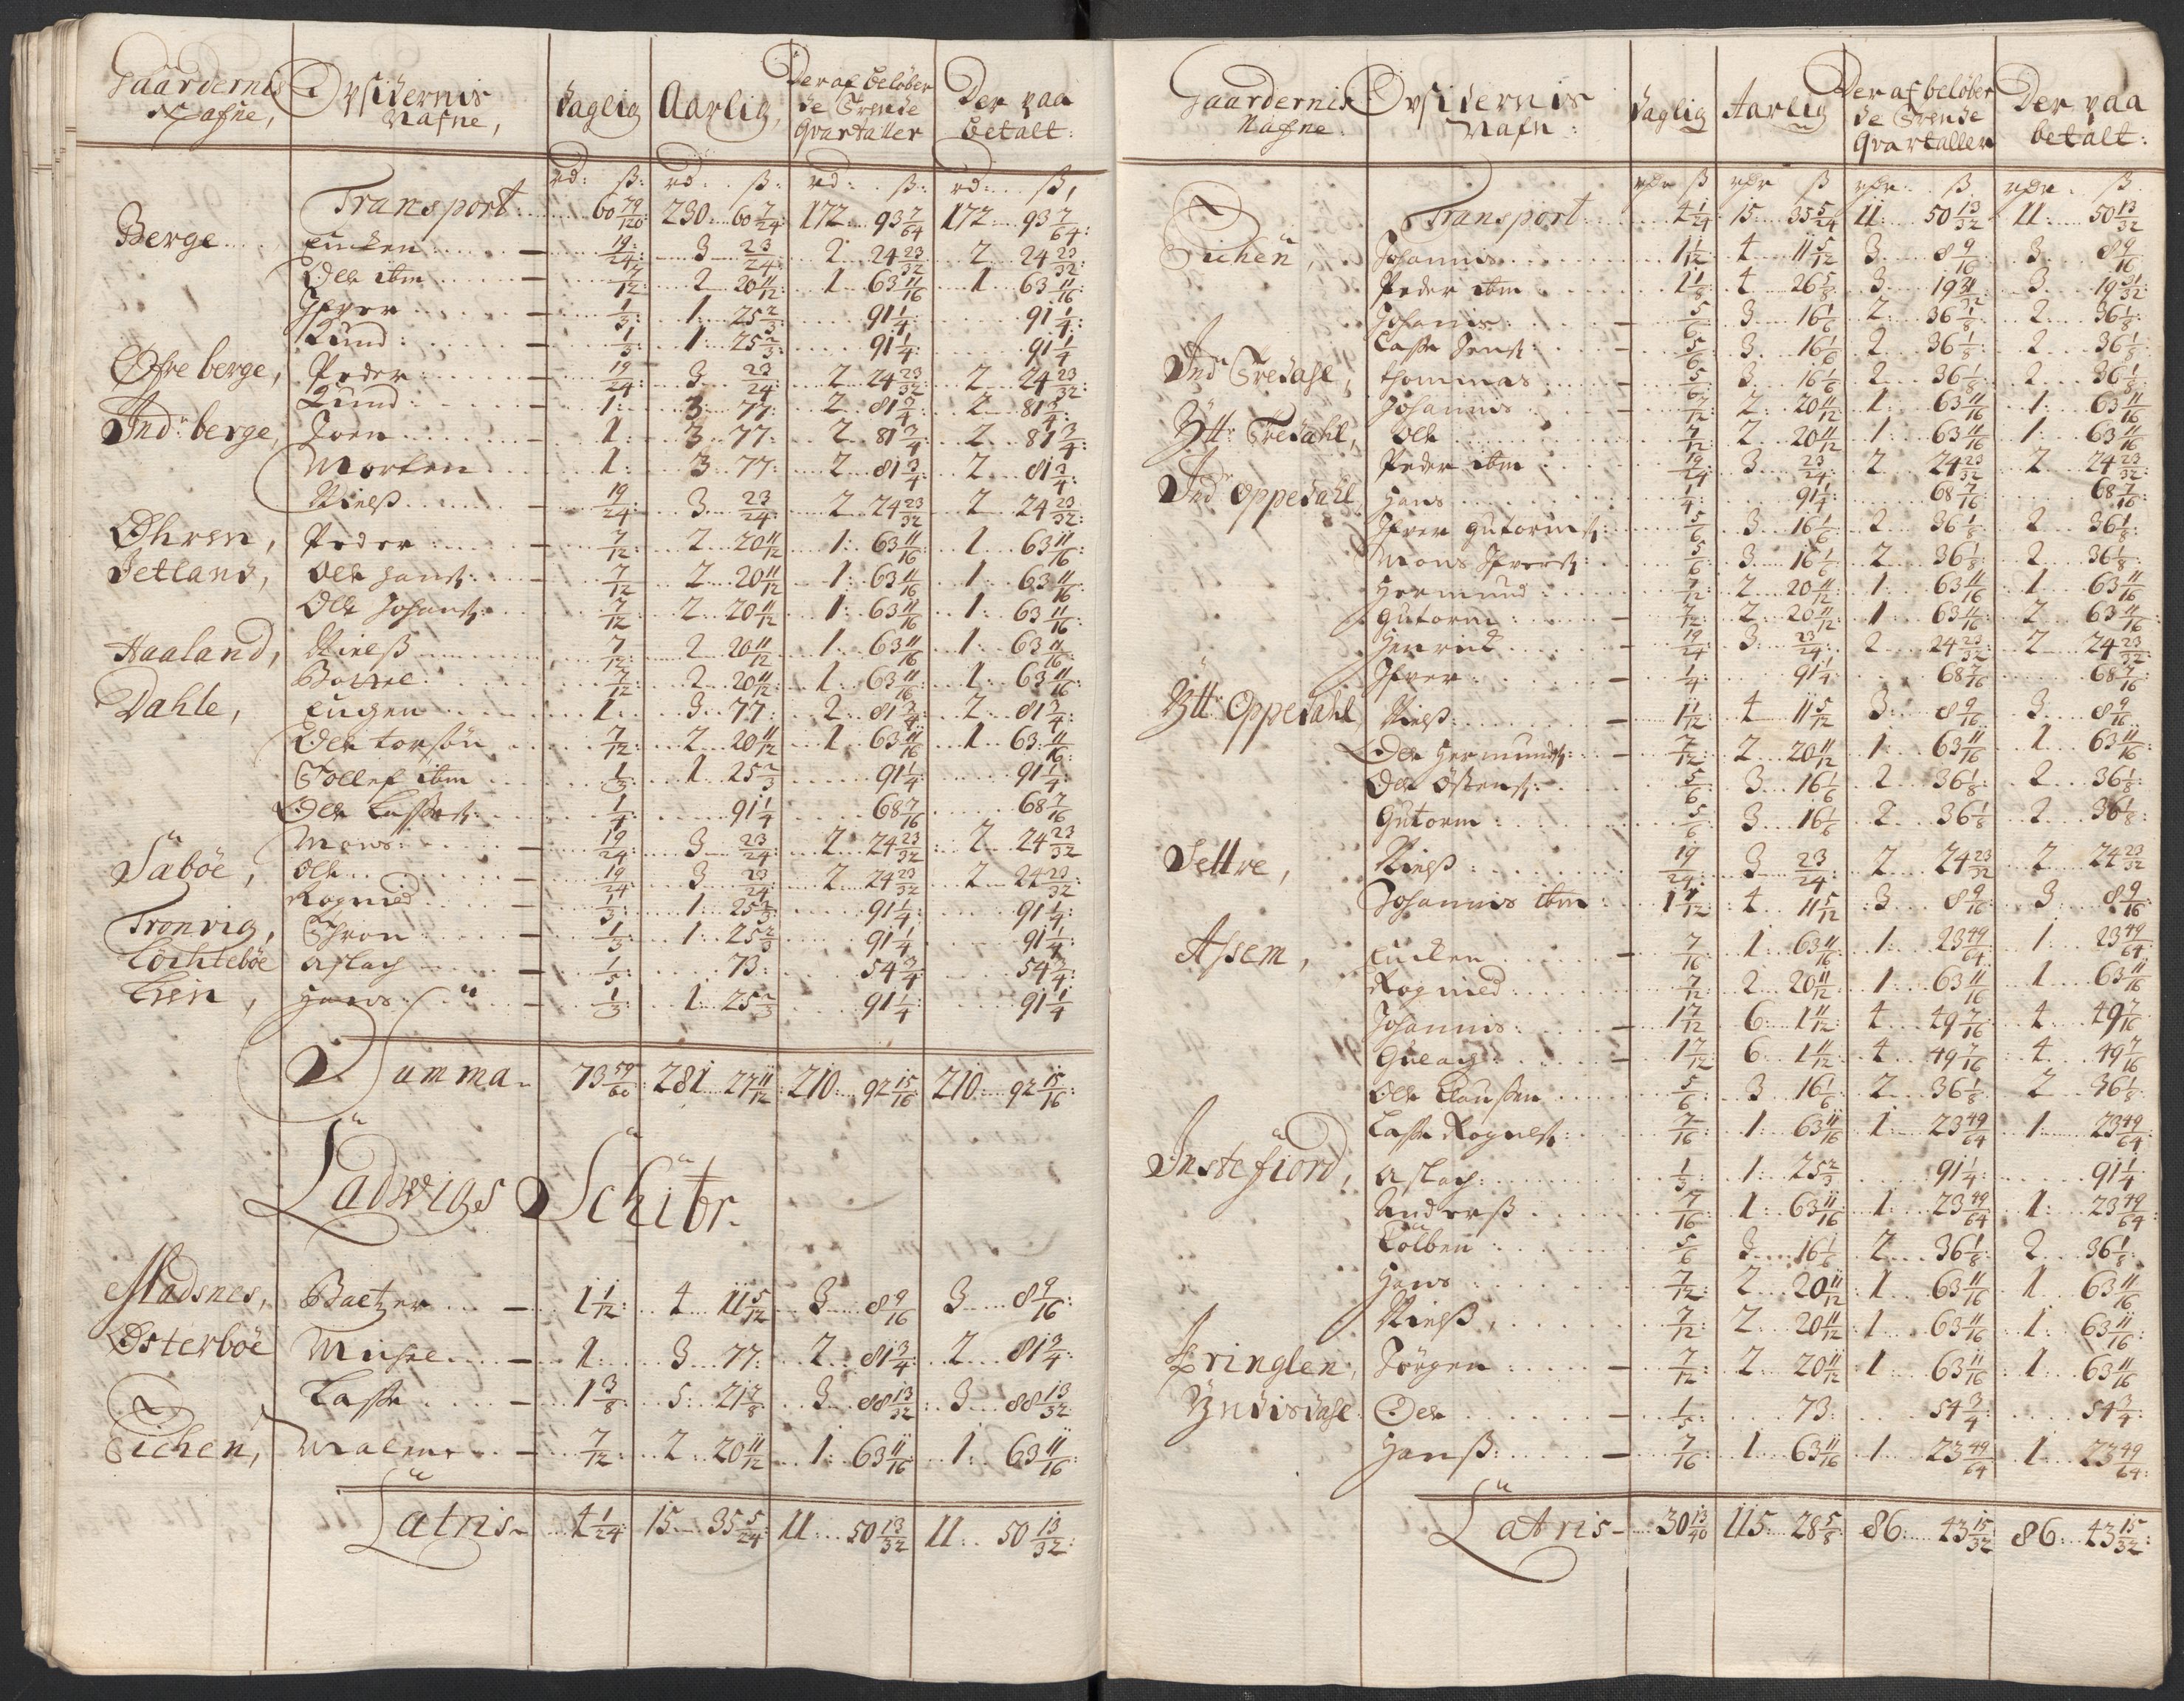 Gaardernis Opsidernis Daglig Aarlig, Der af beløber Der paa
Nafne, Nafne, de Trende betalt:
Qvartaller
rd: ß: rd: ß: rd: ß: rd: ß,
Transport: 60 79/120: 230: 60 7/24: 172 93 7/64 172 93 7/64:
Berge Encken 19/24: 3 23/24: 2 24 23/32 2 24 23/32:
Ole ibm 7/12: 2 20 11/12: 1 63 11/16 1 63 11/16:
Ifver 1/3: 1: 25 2/3: 91 1/4: 91 1/4:
Knud: 1/3: 1: 25 2/3: 91 1/4: 91 1/4
Øfre berge, Peder 19/24: 3 23/24 2 24 23/32: 2 24 23/32:
Knud: 1: 3 77: 2 81 3/4: 2 81 3/4:
Ind: berge, Joen 1: 3 77: 2 81 3/4: 2 81 3/4:
Morten 1: 3 77: 2 81 3/4: 2 81 3/4:
Nielß 19/24: 3 23/24: 2 24 23/32 2 24 23/32:
Øhren, Peder 7/12: 2 20 11/12 1: 63 11/16: 1 63 11/16:
Setland, Ole Hans: 7/12 2 20 11/12 1: 63 11/16 1: 63 11/16
Ole Johans: 7/12 2 20 11/12 1: 63 11/16 1: 63 11/16
Haaland, Nielß 7/12: 2 20 11/12 1: 63 11/16 1: 63 11/16:
7/12: 2 20 11/12 1: 63 11/16 1: 63 11/16:
Dahle, Engen 1 3 77: 2: 81 3/4: 2: 81 3/4:
Ole torsøn 7/12: 2 20 11/12 1 63 11/16 1 63 11/16:
Tollef ibm 1/3: 1 25 2/3 91 1/4: 91 1/4:
Ole Lasses: 1/4: 91 1/4 68 7/16 68 7/16
Mons: 19/24: 3 23/24: 2 24 23/32: 2 24 23/32
Säbøe, Ole 19/24 3 23/24 2 24 23/32 2 24 23/32:
Rognied 1/3: 1: 25 2/3: 91 1/4: 91 1/4:
Tronvig, Thron 1/3 1: 25 2/3 91 1/4 91 1/4:
Løchtebøe Aslach 1/5: 73: 54 3/4: 54 3/4:
Hans 1/3: 1: 25 2/3 91 1/4: 91 1/4
Summa 73 59/60: 281 27 11/12: 210: 92 15/16 210: 92 15/16:
Ladwigs Schibr.
Madsnes, Baltzer 1 1/12: 4 11 5/12 3 8 9/16 3 8 9/16:
Østerbøe Michel 1: 3 77: 2 81 3/4: 2 81 3/4:
Lasse 1 3/8 5: 21 7/8 3 88 13/32: 3 88 13/32:
Eichen, Malene 7/12: 2 20 11/12 1: 63 11/16 1: 63 11/16:
Latris 4 1/24: 15 35 5/24: 11: 50 13/32 11: 50 13/32:
Gaardernis Opsidernis Daglig Aarlig Der af beløber Der paa
Nafne. Nafn: de Trende betalt:
Qvartaller
rdr ß rdr ß rdr ß rdr ß
Transport 4 1/24 15 35 5/24 11: 50 13/32 11: 50 13/32
Eichen, Johannis 1 1/12: 4 11 5/12 3 8 9/16 3 8 9/16
Peder ibm 1 1/8: 4 26 5/8 3 19 31/32 3 19 31/32:
Johanis 5/6 3 16 1/6 2: 36 1/8: 2 36 1/8:
Lasse Jens: 5/6: 3 16 1/6 2 36 1/8: 2 36 1/8:
Ind Tredahl, thommas 5/6: 3 16 1/6: 2 36 1/8: 2 36 1/8:
Johannis 7/12 2: 20 11/12 1: 63 11/16 1: 63 11/16
Ytt: Tredahl, Ole 7/12 2 20 11/12 1: 63 11/16 1: 63 11/16
Peder ibm 19/24 3 23/24 2 24 23/32 2 24 23/32:
Ind: Oppedahl Hans 1/4: 91 1/4: 68 7/16 68 7/16:
Ifver gutorms: 5/6 3 16 1/6: 2 36 1/8: 2 36 1/8:
Mons Ifvers: 5/6 3 16 1/6: 2 36 1/8: 2 36 1/8:
Hermund 7/12 2 20 11/12 1: 63 11/16 1 63 11/16
gutorm 7/12: 2 20 11/12: 1 63 11/16 2 63 11/16
Henrich 19/24 3 23/24: 2 24 23/32 2 24 23/32:
Ifver 1/4: 91 1/4: 68 7/16 68 7/16
Ytt: Oppedahl Nielß: 1 1/12: 4 11 5/12 3: 8 9/16 3 8 9/16
Ole Hermunds: 7/12: 2 20 11/12 1: 63 11/16 1 63 11/16:
Ole Østens: 5/6 3 16 1/6 2 36 1/8: 2 36 1/8:
Gutorm 5/6 3 16 1/6 2 36 1/8 2 36 1/8:
Settre, Nielß 19/24: 3 23/24: 2 24 23/32 2 24 23/32
Johannis ibm 1 1/12: 4 11 5/12 3 8 9/16 3 8 9/16:
Assem, Encken 7/16 1: 63 11/16 1: 23 49/64: 1: 23 49/64
Rognied 7/12: 2 20 11/12 1 63 11/16 1 63 11/16
Johannis: 1 7/12 6: 1 11/12: 4 49 7/16: 4 49 7/16
Guläch 1 7/12: 6: 1 11/12: 4 49 7/16: 4 49 7/16
Ole Clausen 5/6 3 16 1/6 2 36 1/8 2 36 1/8:
Lasse Rognes: 7/16 1: 63 11/16 1 23 49/64 1 23 49/64:
Instefiord, Aslach 1/3 1: 25 2/3 91 1/4: 91 1/4:
Anderß 7/16: 1: 63 11/16: 1: 23 49/64 1: 23 49/64:
Colben 5/6 3 16 1/6: 2 36 1/8: 2 36 1/8:
Hans 7/12: 2 20 11/12 1 63 11/16 1 63 11/16
Nielß 7/12 2 20 11/12 1 63 11/16 1: 63 11/16:
Kringlen, Jørgen 7/12: 2 20 11/12 1 63 11/16: 1 63 11/16
Yndisdahl Ole 1/5: 73: 54 3/4: 54 3/4:
Hanß: 7/16: 1 63 11/16 1 23 49/64: 1 23 49/64:
Latris 30 13/40 115: 28 5/8 86: 43 15/32 86: 43 15/32: